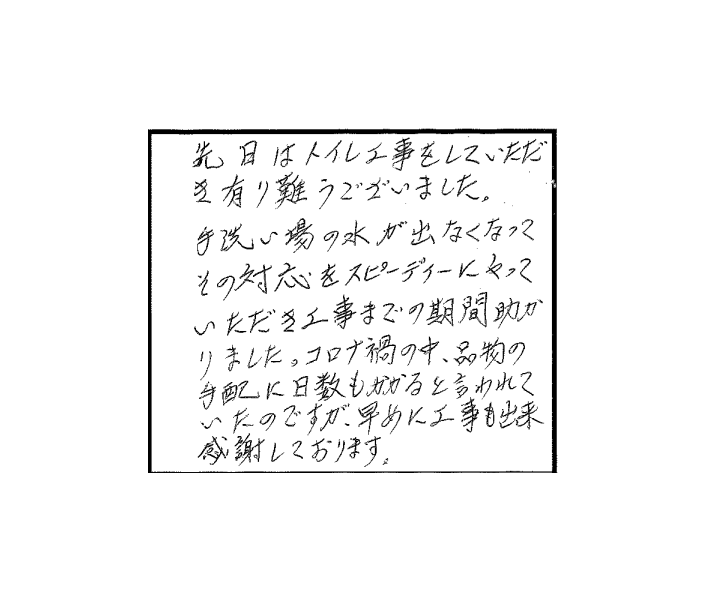 先日はトイレ工事をしていただ
き有り難うございました。
手洗い場の水が出なくなって
その対応をスピーディーにやって
いただき工事までの期間助か
りました。コロナ禍の中、品物の
手配に日数もかかると言われて
いたのですが、早めに工事も出来
感謝しております。